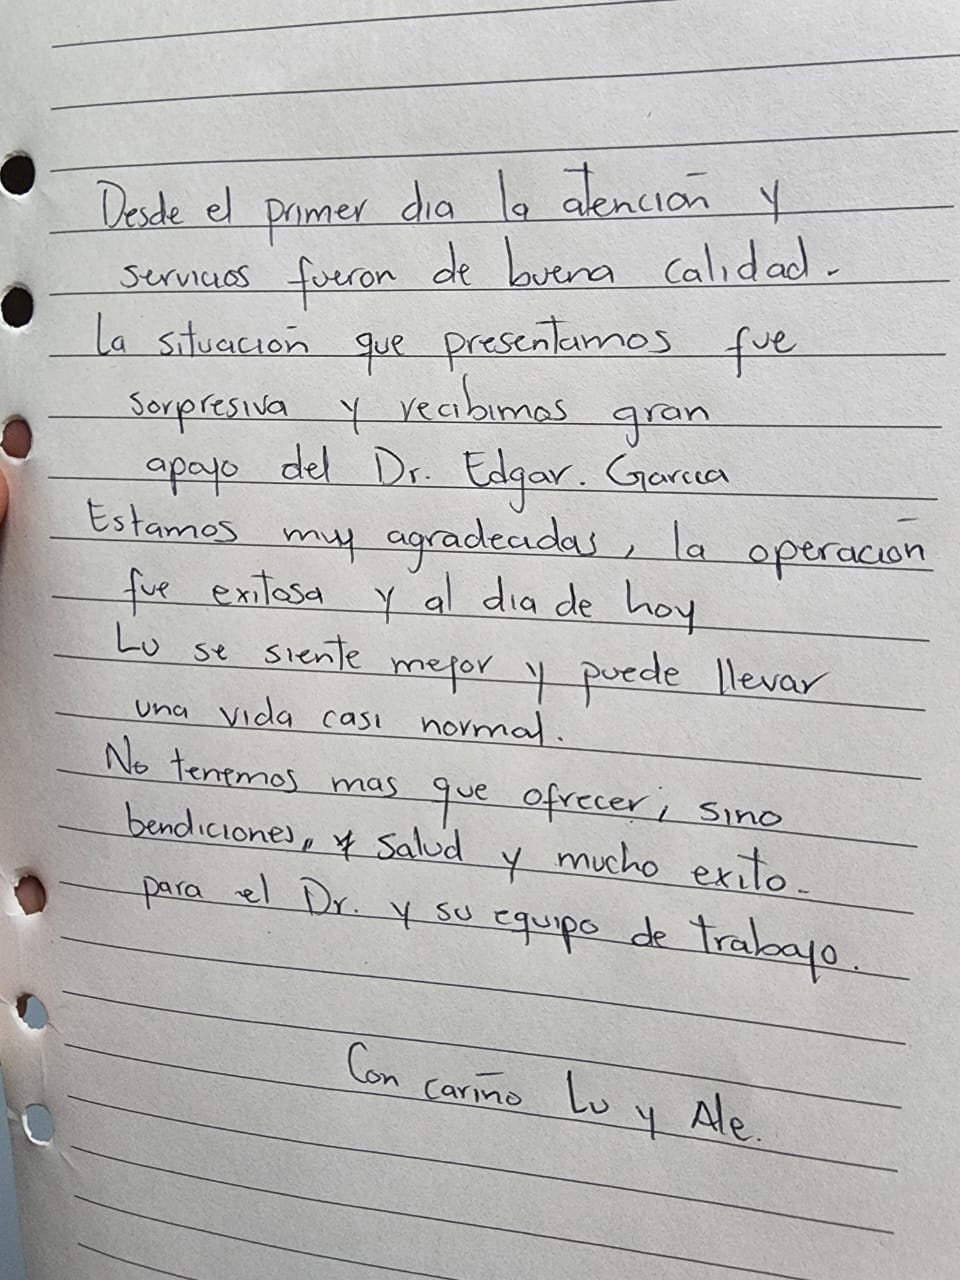 Desde el primer dia la atención y
servicios fueron de buena calidad.
la situación que presentamos fue
sorpresiva y recibimos gran
apoyo del Dr. Edgar. Garcia
Estamos muy agradecidas, la operación
fue exitosa y al dia de hoy
Lu se siente mejor y puede llevar
una vida casi normal.
No tenemos mas que ofrecer, sino
bendiciones, y salud y mucho exito.
para el Dr. y su equipo de trabajo.
Con cariño Lu y Ale.